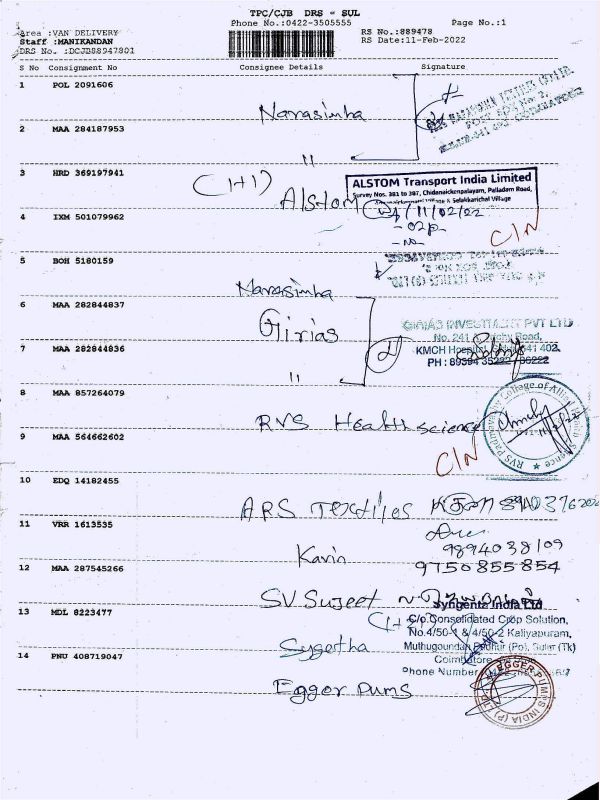 TPC/CJB DRS - SUL
Phone No.:0422-3505555
Page No.:1
Area :VAN DELIVERY
Staff :MANIKANDAN
DRS No. :DCJB88947801
RS No.:889478
RS Date:11-Feb-2022
S No Consignment No Consignee Details Signature
1 POL 2091606
Narasimha
2 MAA 284187953
"
3 HRD 369197941
(1+1) Alstom
ALSTOM Transport India Limited
Survey Nos. 381 to 387, Chidanaickenpalayam, Palladam Road,
& Selakkarichal Village
11/02/22
4 IXM 501079962
C/N
5 BOH 5180159
Narasimha
6 MAA 282844837
Girias
GIRIAS INVESTMENT PVT LTD
No. 241 Trichy Road,
KMCH Hospital, 641 402.
PH : 89394 35222 / 36222
7 MAA 282844836
"
8 MAA 857264079
RVS Health science
9 MAA 564662602
C/N
10 EDQ 14182455
ARS Textiles
11 VRR 1613535
Kavin
9894038109
12 MAA 287545266
9750855854
SV Sujeet
13 MDL 8223477
Sygetha
Syngenta India Ltd
C/o.Consolidated Crop Solution,
No.4/50-1 & 4/50-2 Kaliyapuram,
Muthugoundan Pudhur (Po), Sulur (Tk)
Coimbatore
Phone Number
14 PNU 408719047
Eggor Pums
EGGER PUMPS INDIA (P) LTD